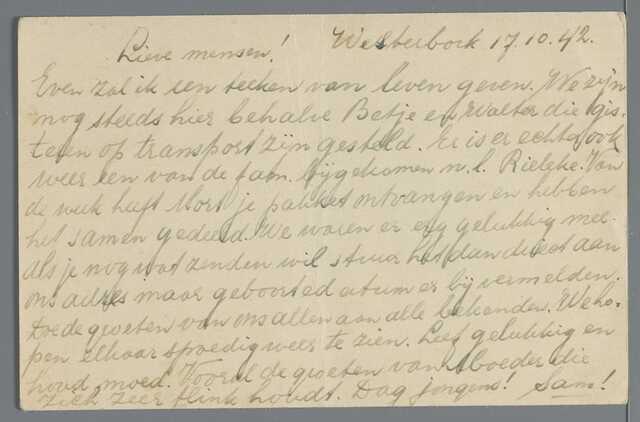 Lieve mensen! Westerbork 17.10.42.
Even zal ik een teeken van leven geven. We zijn
nog steeds hier behalve Betje en Walter die gis-
teren op transport zijn gesteld. Er is er echter ook
weer een van de fam. bijgekomen n.l. Riekje. Van
de week heeft Mort je pakket ontvangen en hebben
het samen gedeeld. We waren er erg gelukkig mee.
als je nog wat zenden wil stuur het dan direct aan
ons adres maar geboortedatum er bij vermelden.
de groeten van ons allen aan alle bekenden. We ho-
pen elkaar spoedig weer te zien. Leef gelukkig en
houd moed. Vooral de groeten van Moeder die
zich zeer flink houdt. Dag jongens! Sam!